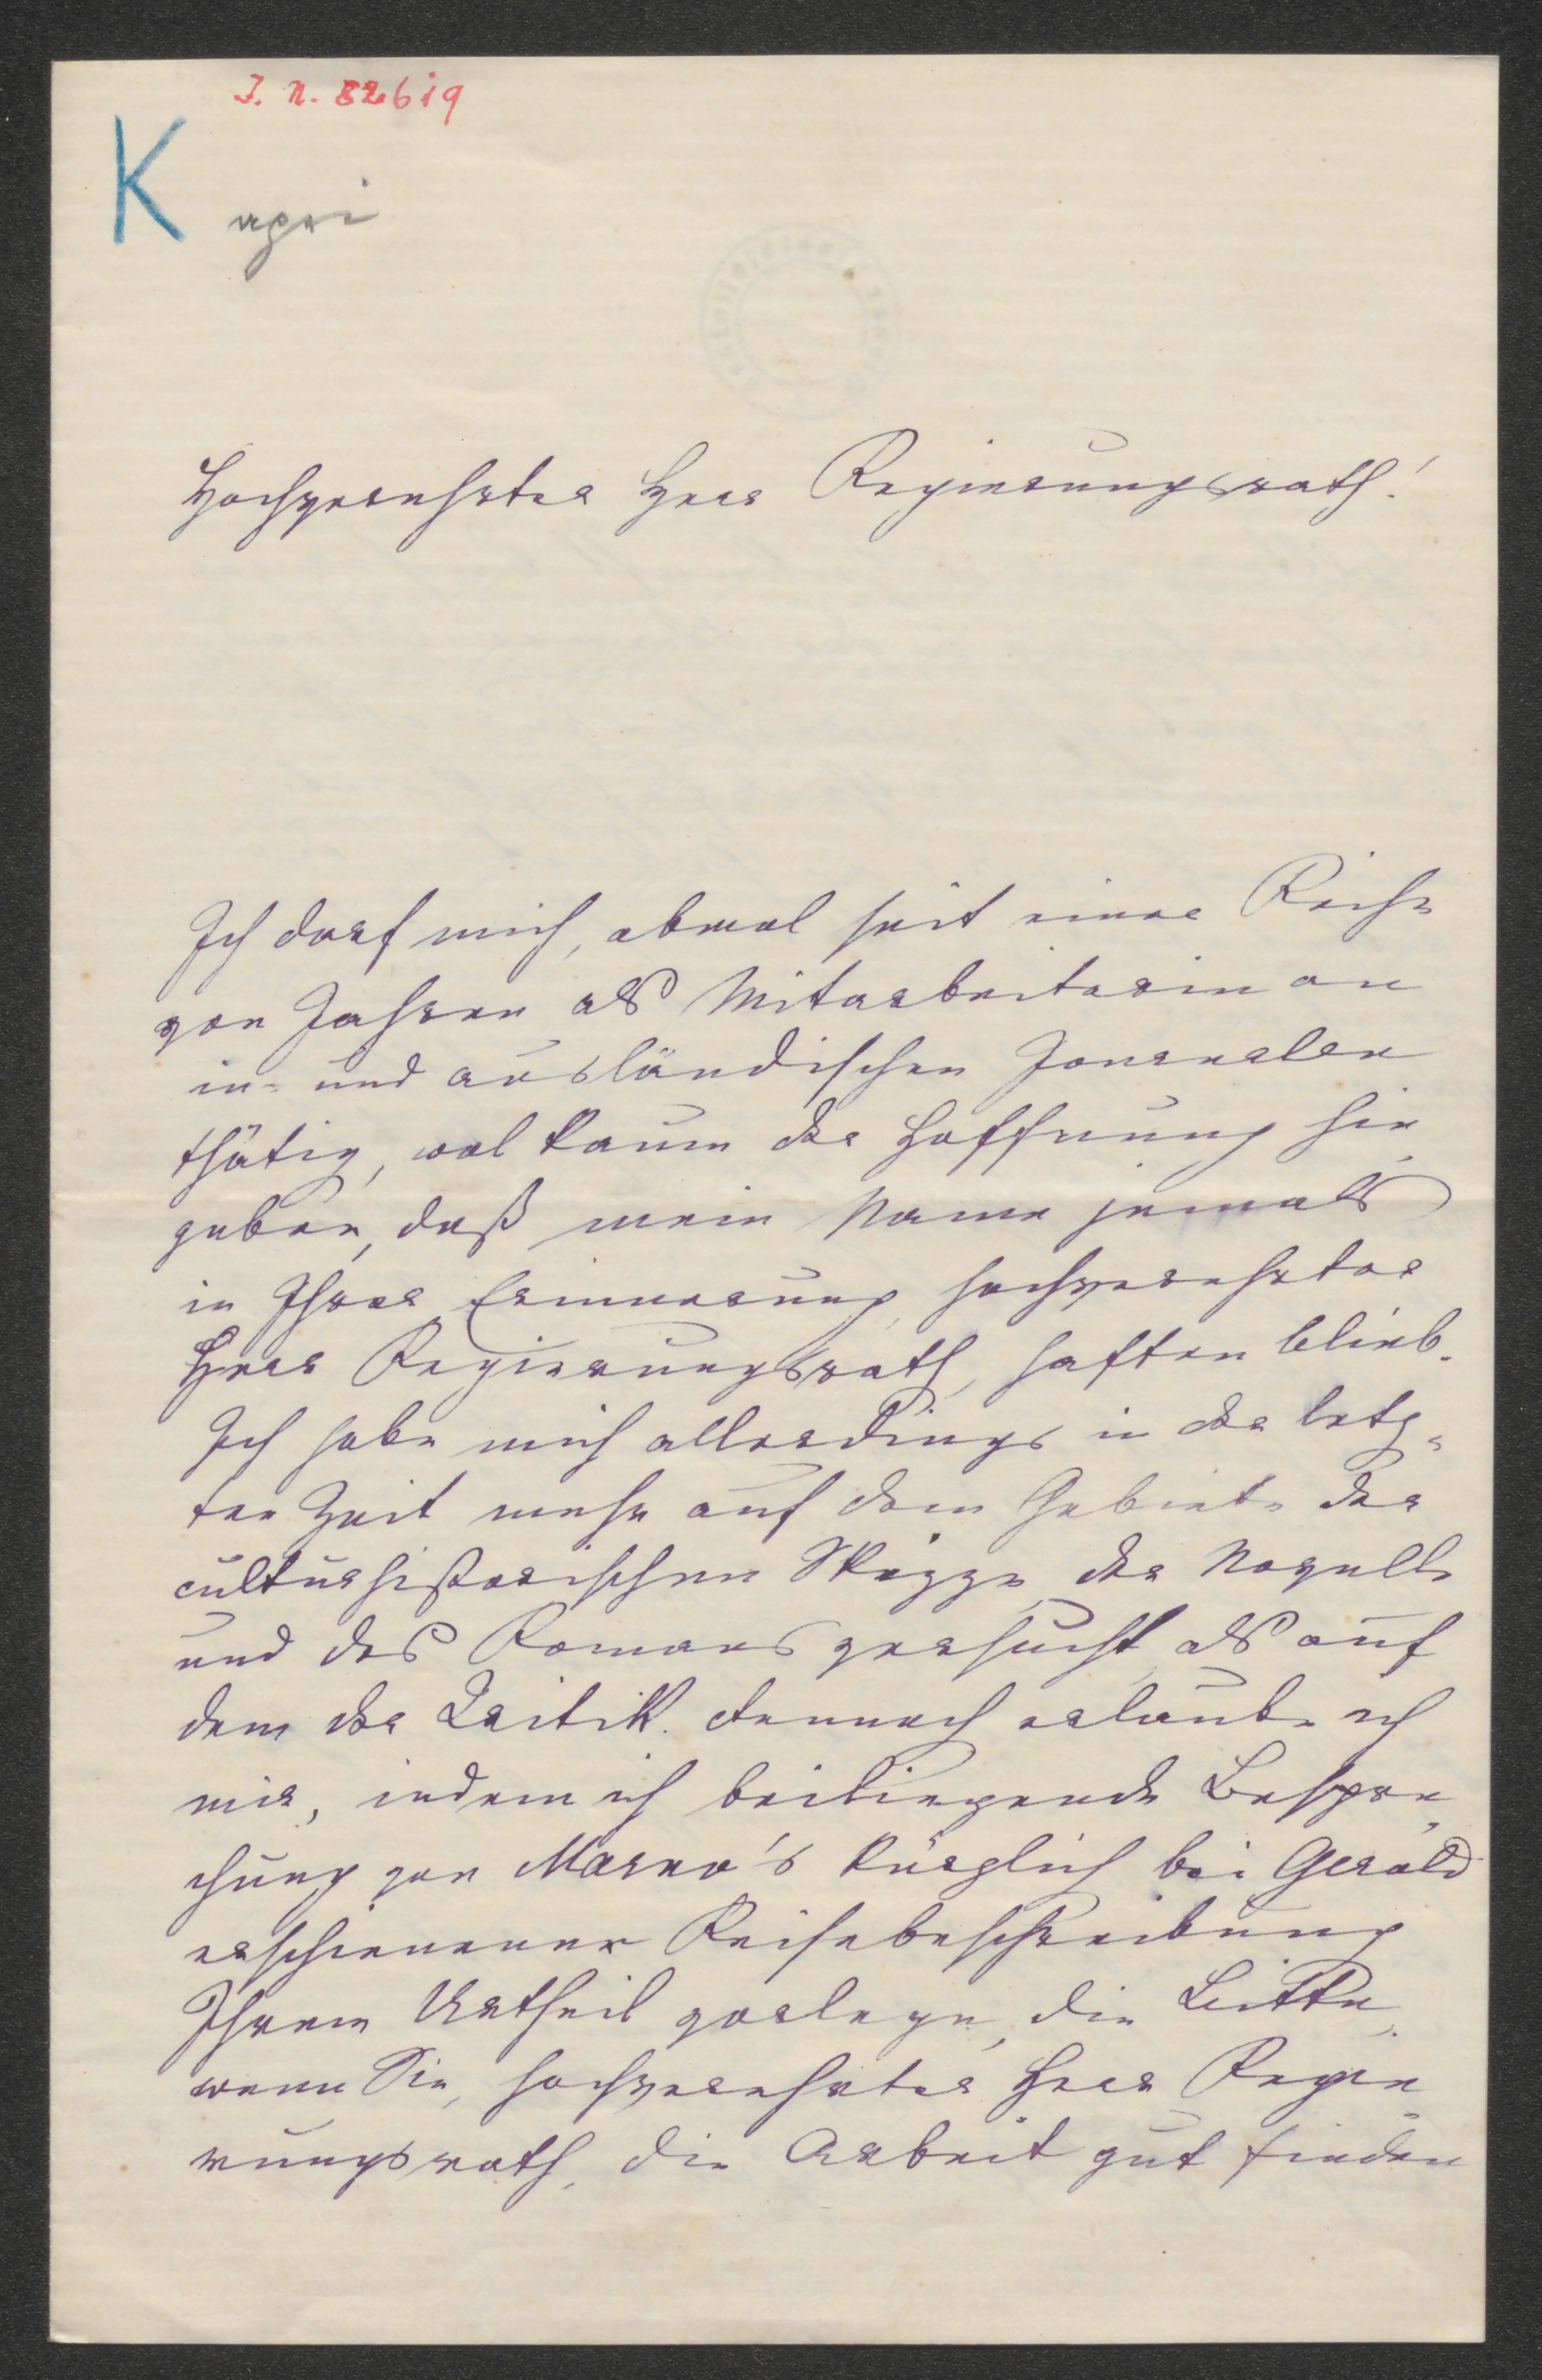 I. N. 82619
K apri
Hochverehrter Herr Regierungsrath!
Ich darf mich, obwol seit einer Reihe
von Jahren als Mitarbeiterin an
in- und ausländischen Journalen
thätig, wol kaum der Hoffnung hin
geben, daß mein Name jemals
in Ihrer Erinnerung, hochverehrter
Herr Regierungsrath, haften blieb.
Ich habe mich allerdings in der letz-
ten Zeit mehr auf dem Gebiete der
culturhistorischen Skizze, der Novelle
und des Romans versucht, als auf
dem der Kritik. Dennoch erlaube ich
mir, indem ich beiliegende Bespre
chung von Marno's kürzlich bei Gerold
erschienenen Reisebeschreibung
Ihrem Urtheil vorlege, die Bitte,
wenn Sie, hochverehrter Herr Regie
rungsrath, die Arbeit gut finden